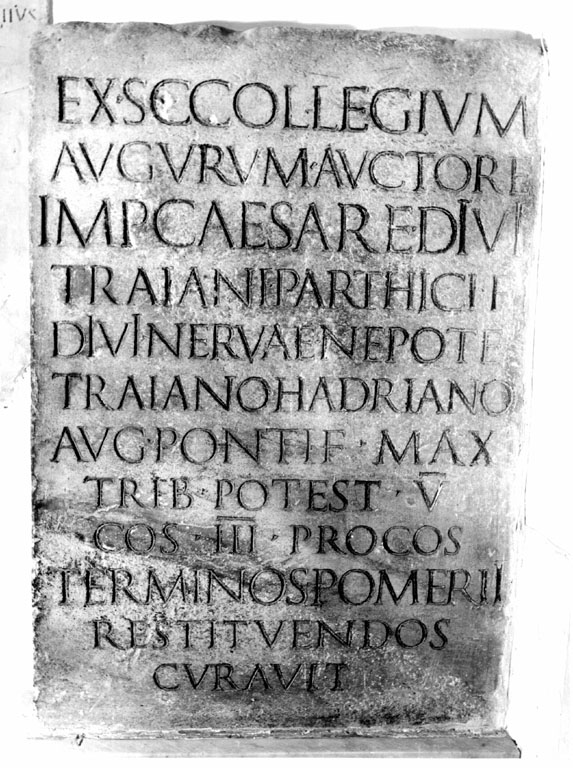 IIVS
EX·S·C·COLLEGIVM
AVGVRVM·AVCTORE
IMP·CAESARE·DIVI
TRAIANI·PARTHICI·F
DIVI·NERVAE·NEPOTE
TRAIANO·HADRIANO
AVG·PONTIF·MAX
TRIB·POTEST·V̅
COS·I̅I̅I̅·PROCOS
TERMINOS·POMERII
RESTITVENDOS
CVRAVIT